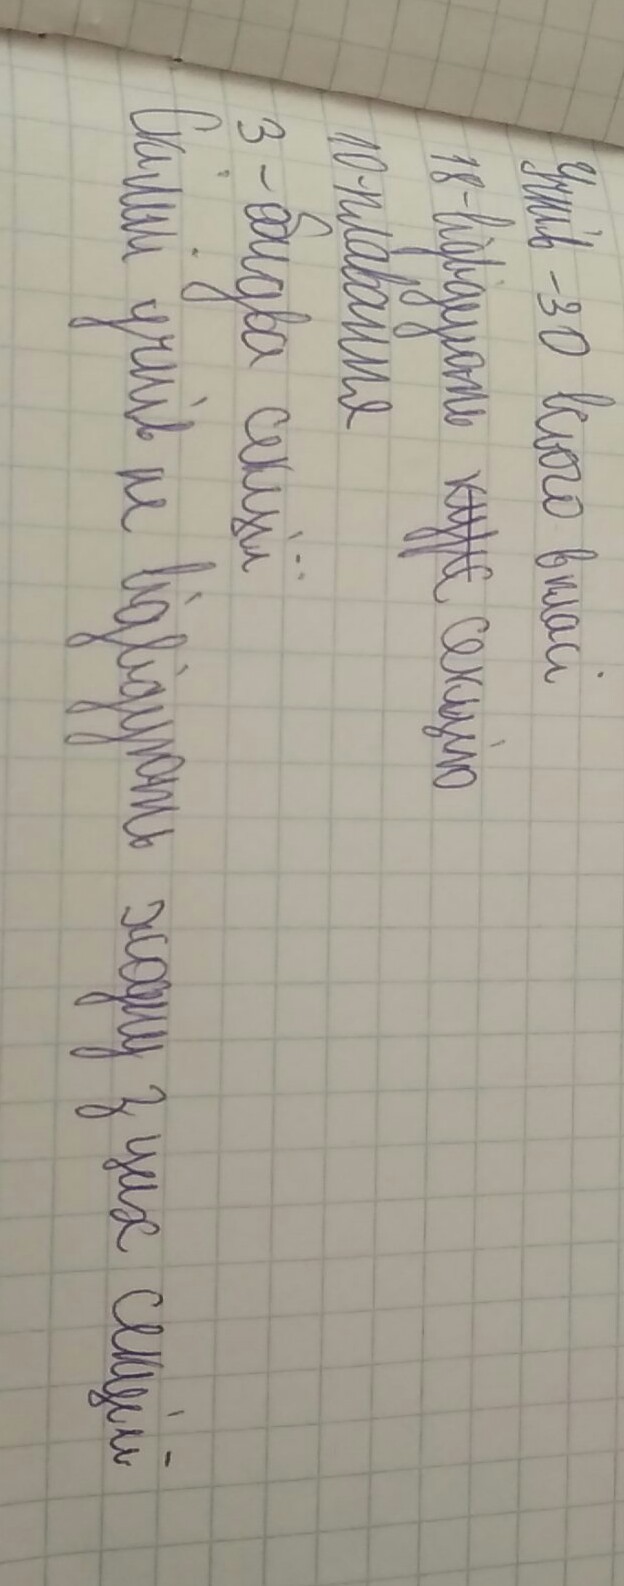 Учнів - 30 всього в класі
18 - відвідують секцію
10 - плавання
3 - обидва секції
Скільки учнів не відвідують жодну з цих секцій